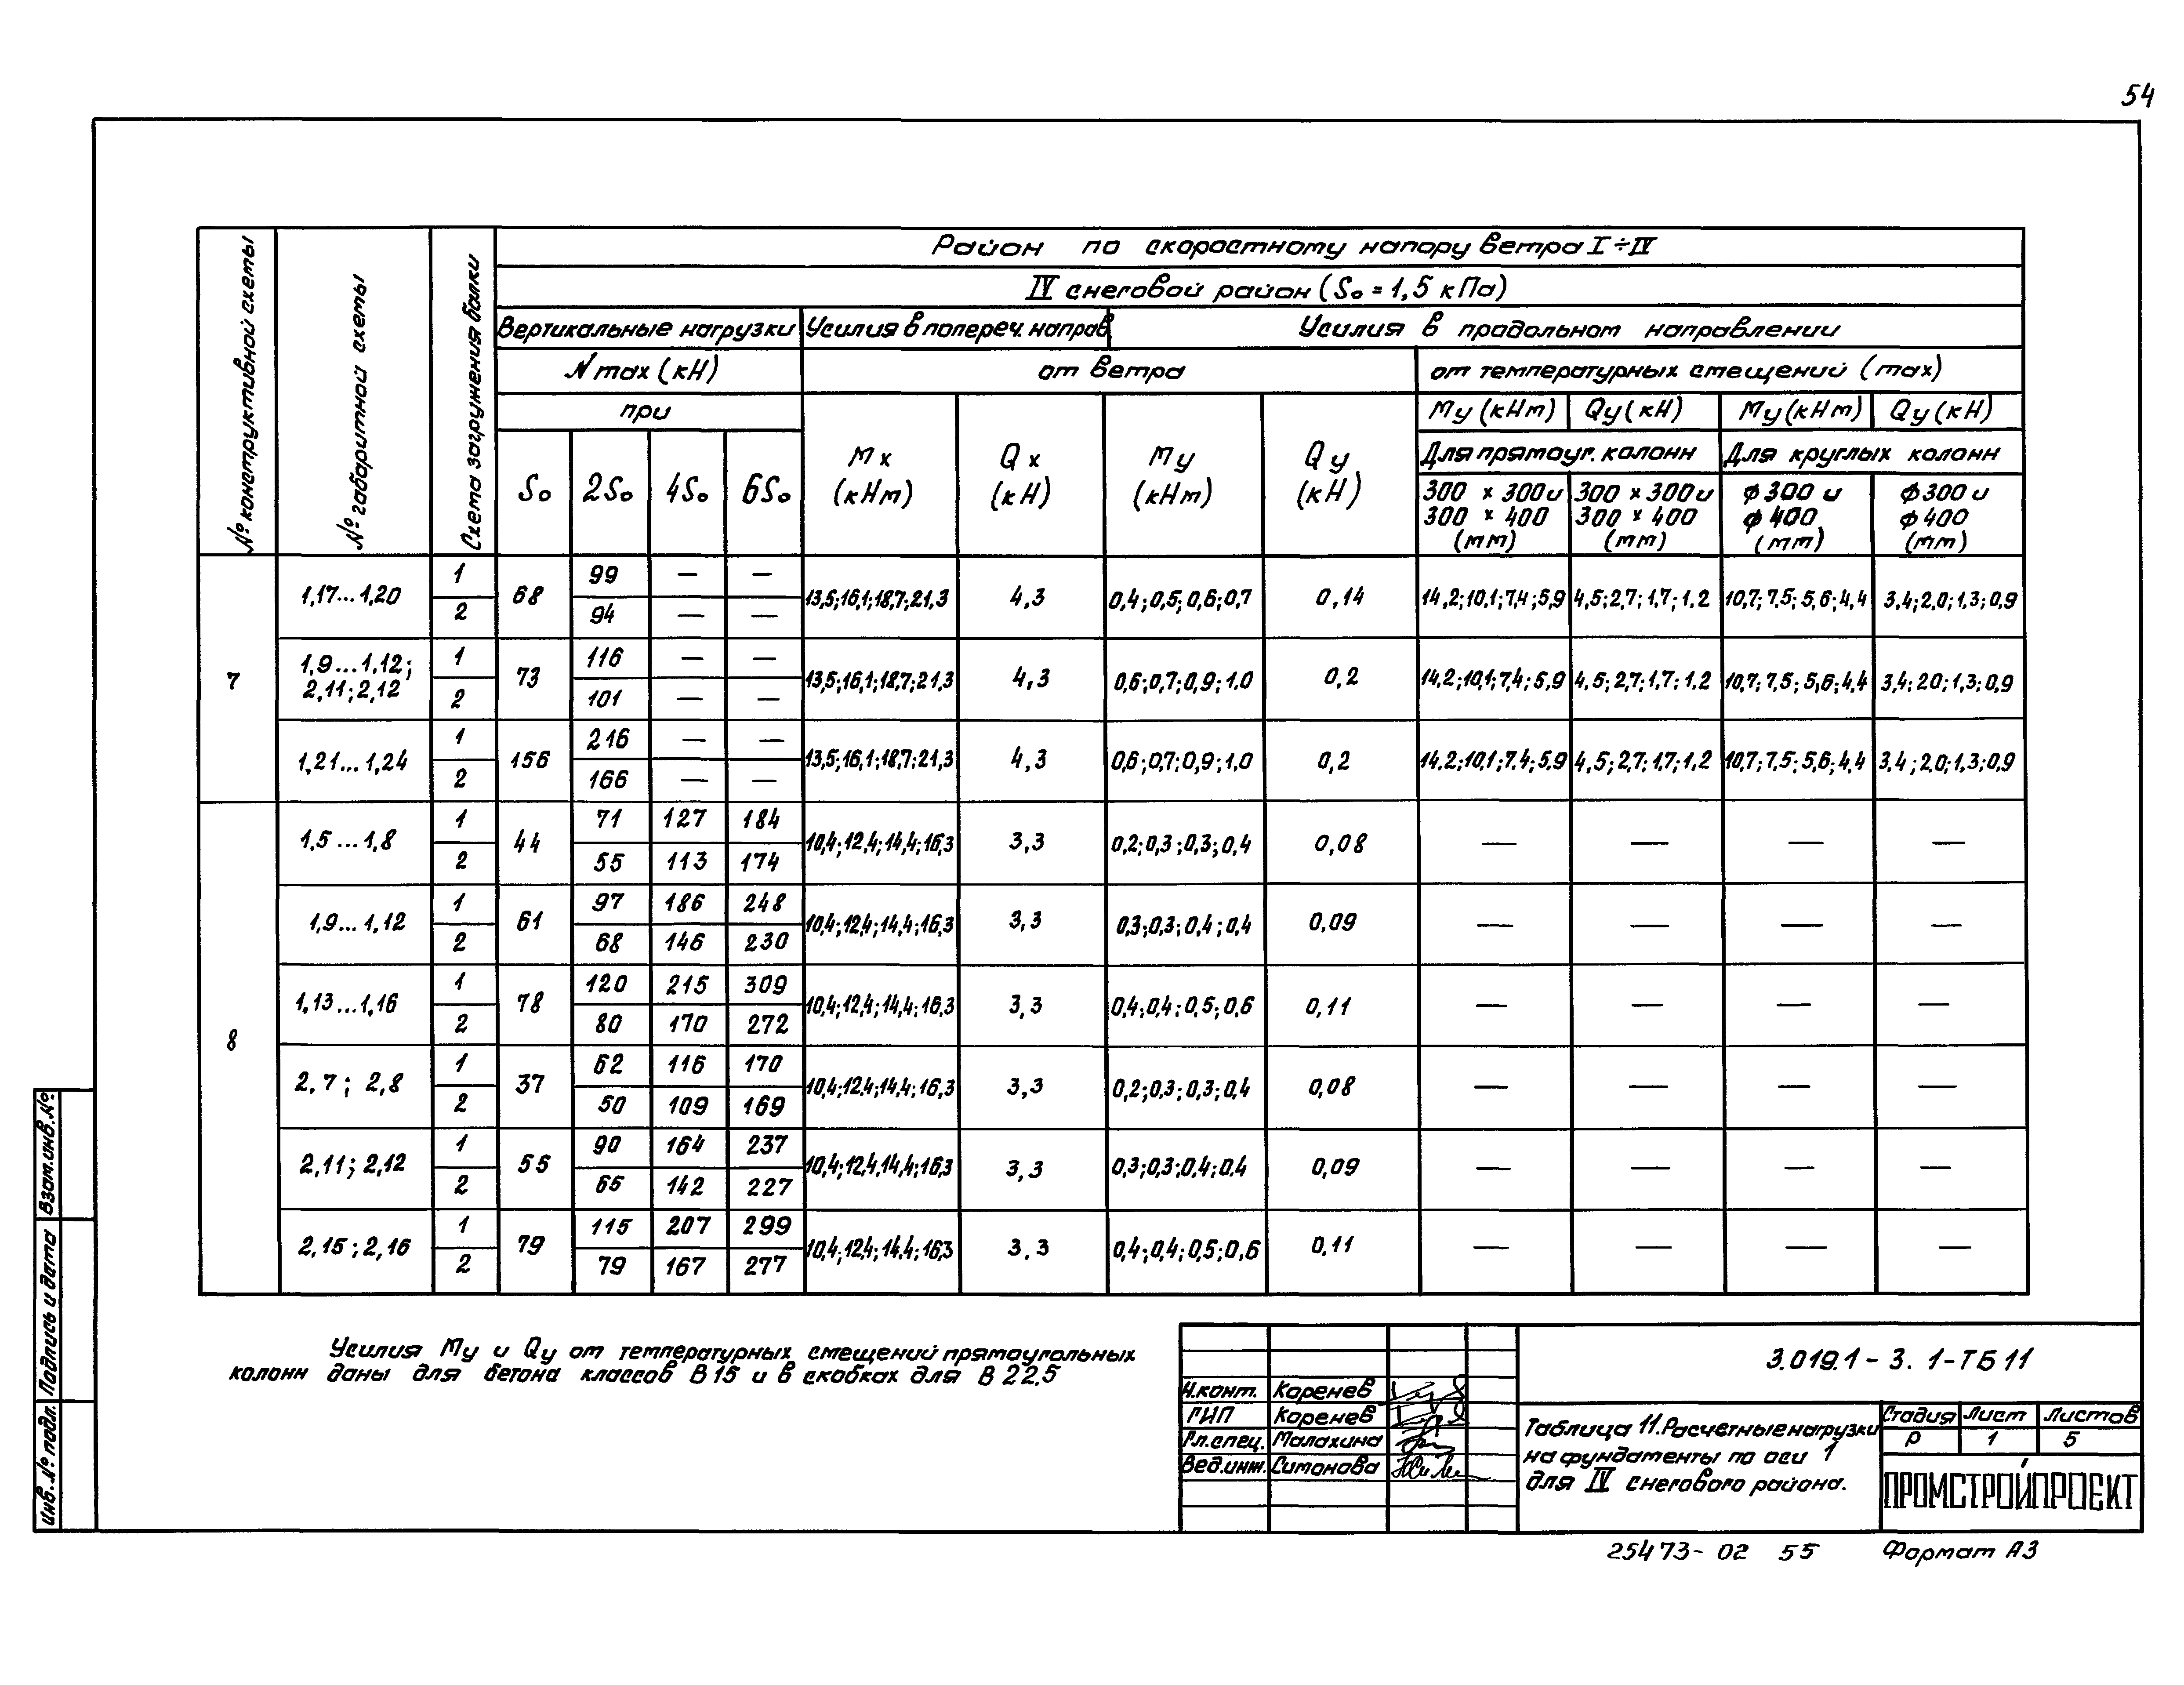 54
Район по скоростному напору ветра I÷IV
IV снеговой район (S₀ = 1,5 кПа)
№ конструктивной схемы
№ габаритной схемы
Схема загружения балки
Вертикальные нагрузки Усилия в попереч. направ. Усилия в продольном направлении
N max (кН) от ветра от температурных смещений (max)
при Му (кНм) Qу (кН) Му (кНм) Qу (кН)
Для прямоуг. колонн Для круглых колонн
S₀ 2S₀ 4S₀ 6S₀ Мх (кНм) Qх (кН) Му (кНм) Qу (кН) 300 × 300 и 300 × 400 (мм) 300 × 300 и 300 × 400 (мм) ϕ 300 и ϕ 400 (мм) ϕ 300 и ϕ 400 (мм)
7
1,17...1,20 1 68 99 — — 13,5;16,1;18,7;21,3 4,3 0,4;0,5;0,6;0,7 0,14 14,2;10,1;7,4;5,9 4,5;2,7;1,7;1,2 10,7;7,5;5,6;4,4 3,4;2,0;1,3;0,9
2 94 — —
1,9...1,12; 2,11;2,12 1 73 116 — — 13,5;16,1;18,7;21,3 4,3 0,6;0,7;0,9;1,0 0,2 14,2;10,1;7,4;5,9 4,5;2,7;1,7;1,2 10,7;7,5;5,6;4,4 3,4;2,0;1,3;0,9
2 101 — —
1,21...1,24 1 156 216 — — 13,5;16,1;18,7;21,3 4,3 0,6;0,7;0,9;1,0 0,2 14,2;10,1;7,4;5,9 4,5;2,7;1,7;1,2 10,7;7,5;5,6;4,4 3,4;2,0;1,3;0,9
2 166 — —
8
1,5...1,8 1 44 71 127 184 10,4;12,4;14,4;16,3 3,3 0,2;0,3;0,3;0,4 0,08 — — — —
2 55 113 174
1,9...1,12 1 61 97 186 248 10,4;12,4;14,4;16,3 3,3 0,3;0,3;0,4;0,4 0,09 — — — —
2 68 146 230
1,13...1,16 1 78 120 215 309 10,4;12,4;14,4;16,3 3,3 0,4;0,4;0,5;0,6 0,11 — — — —
2 80 170 272
2,7; 2,8 1 37 62 116 170 10,4;12,4;14,4;16,3 3,3 0,2;0,3;0,3;0,4 0,08 — — — —
2 50 109 169
2,11; 2,12 1 55 90 164 237 10,4;12,4;14,4;16,3 3,3 0,3;0,3;0,4;0,4 0,09 — — — —
2 65 142 227
2,15; 2,16 1 79 115 207 299 10,4;12,4;14,4;16,3 3,3 0,4;0,4;0,5;0,6 0,11 — — — —
2 79 167 277
Усилия Му и Qу от температурных смещений прямоугольных
колонн даны для бетона классов В15 и в скобках для В 22,5
3.019.1 - 3. 1-ТБ 11
Н.конт. Коренев
ГИП Коренев
Гл.спец. Малахина
Вед.инж. Симонова
Таблица 11. Расчетные нагрузки
на фундаменты по оси 1
для IV снегового района.
Стадия Лист Листов
Р 1 5
ПРОМСТРОЙПРОЕКТ
25473-02 55 Формат А3
Взам.инв.№
Подпись и дата
Инв.№ подл.